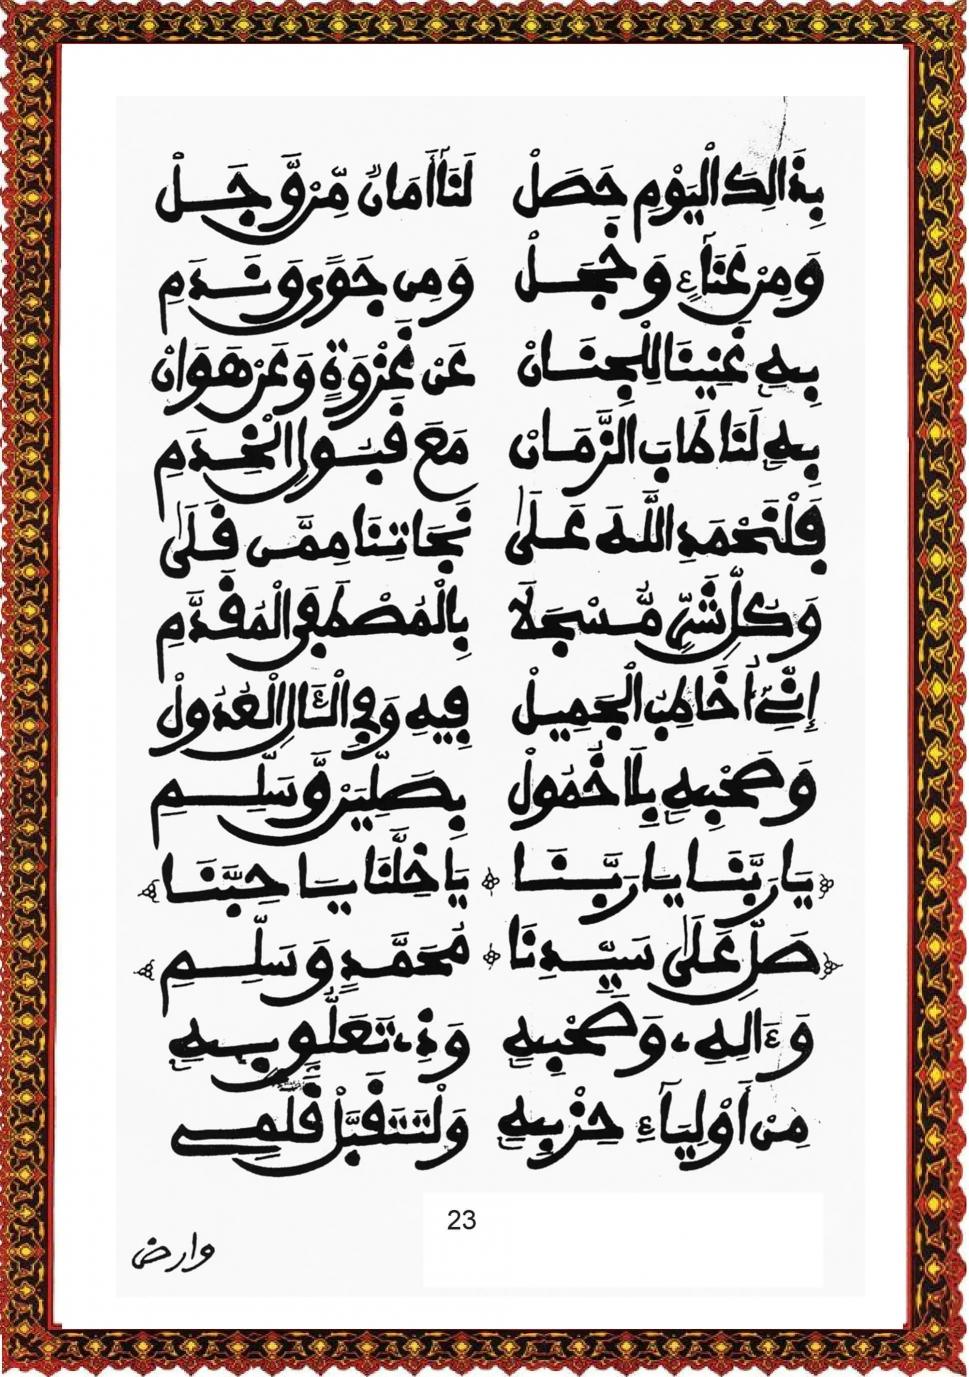 بِذَالِكَ الْيَوْمِ حَصَلْ لَنَا أَمَانٌ مِّنْ وَّجَلْ
وَمِنْ عَنَاءٍ وَخَجَلْ وَمِن جَوًى وَنَدَمِ
بِهِ غَنِينَا لِلْجِنَانْ عَن غَزْوَةٍ وَعَنْ هَوَانْ
بِهِ لَنَا طَابَ الزَّمَانْ مَعَ قَبُولِ الْخِدَمِ
فَلْنَحْمَدِ اللَّهَ عَلَى نَجَاتِنَا مِمَّن قَلَى
وَكُلِّ شَرٍّ مُّسْجَلَا بِالْمُصْطَفَى الْمُقَدَّمِ
إِنِّي أُخَاطِبُ الْجَمِيلْ فِيهِ وَفِي الْئَالِ الْعُدُولْ
وَصَحْبِهِ بِلَا خُمُولْ بِصَلِّيَنْ وَّسَلِّمِ
يَا رَبَّنَا يَا رَبَّنَا يَا خِلَّنَا يَا حِبَّنَا
صَلِّ عَلَى سَيِّدِنَا مُحَمَّدٍ وَسَلِّمِ
وَءَالِهِ وَصَحْبِهِ وَذِي تَعَلُّقٍ بِهِ
مِنْ أَوْلِيَاءِ حِزْبِهِ وَلْتَتَقَبَّلْ قَلَمِي
وارض
23